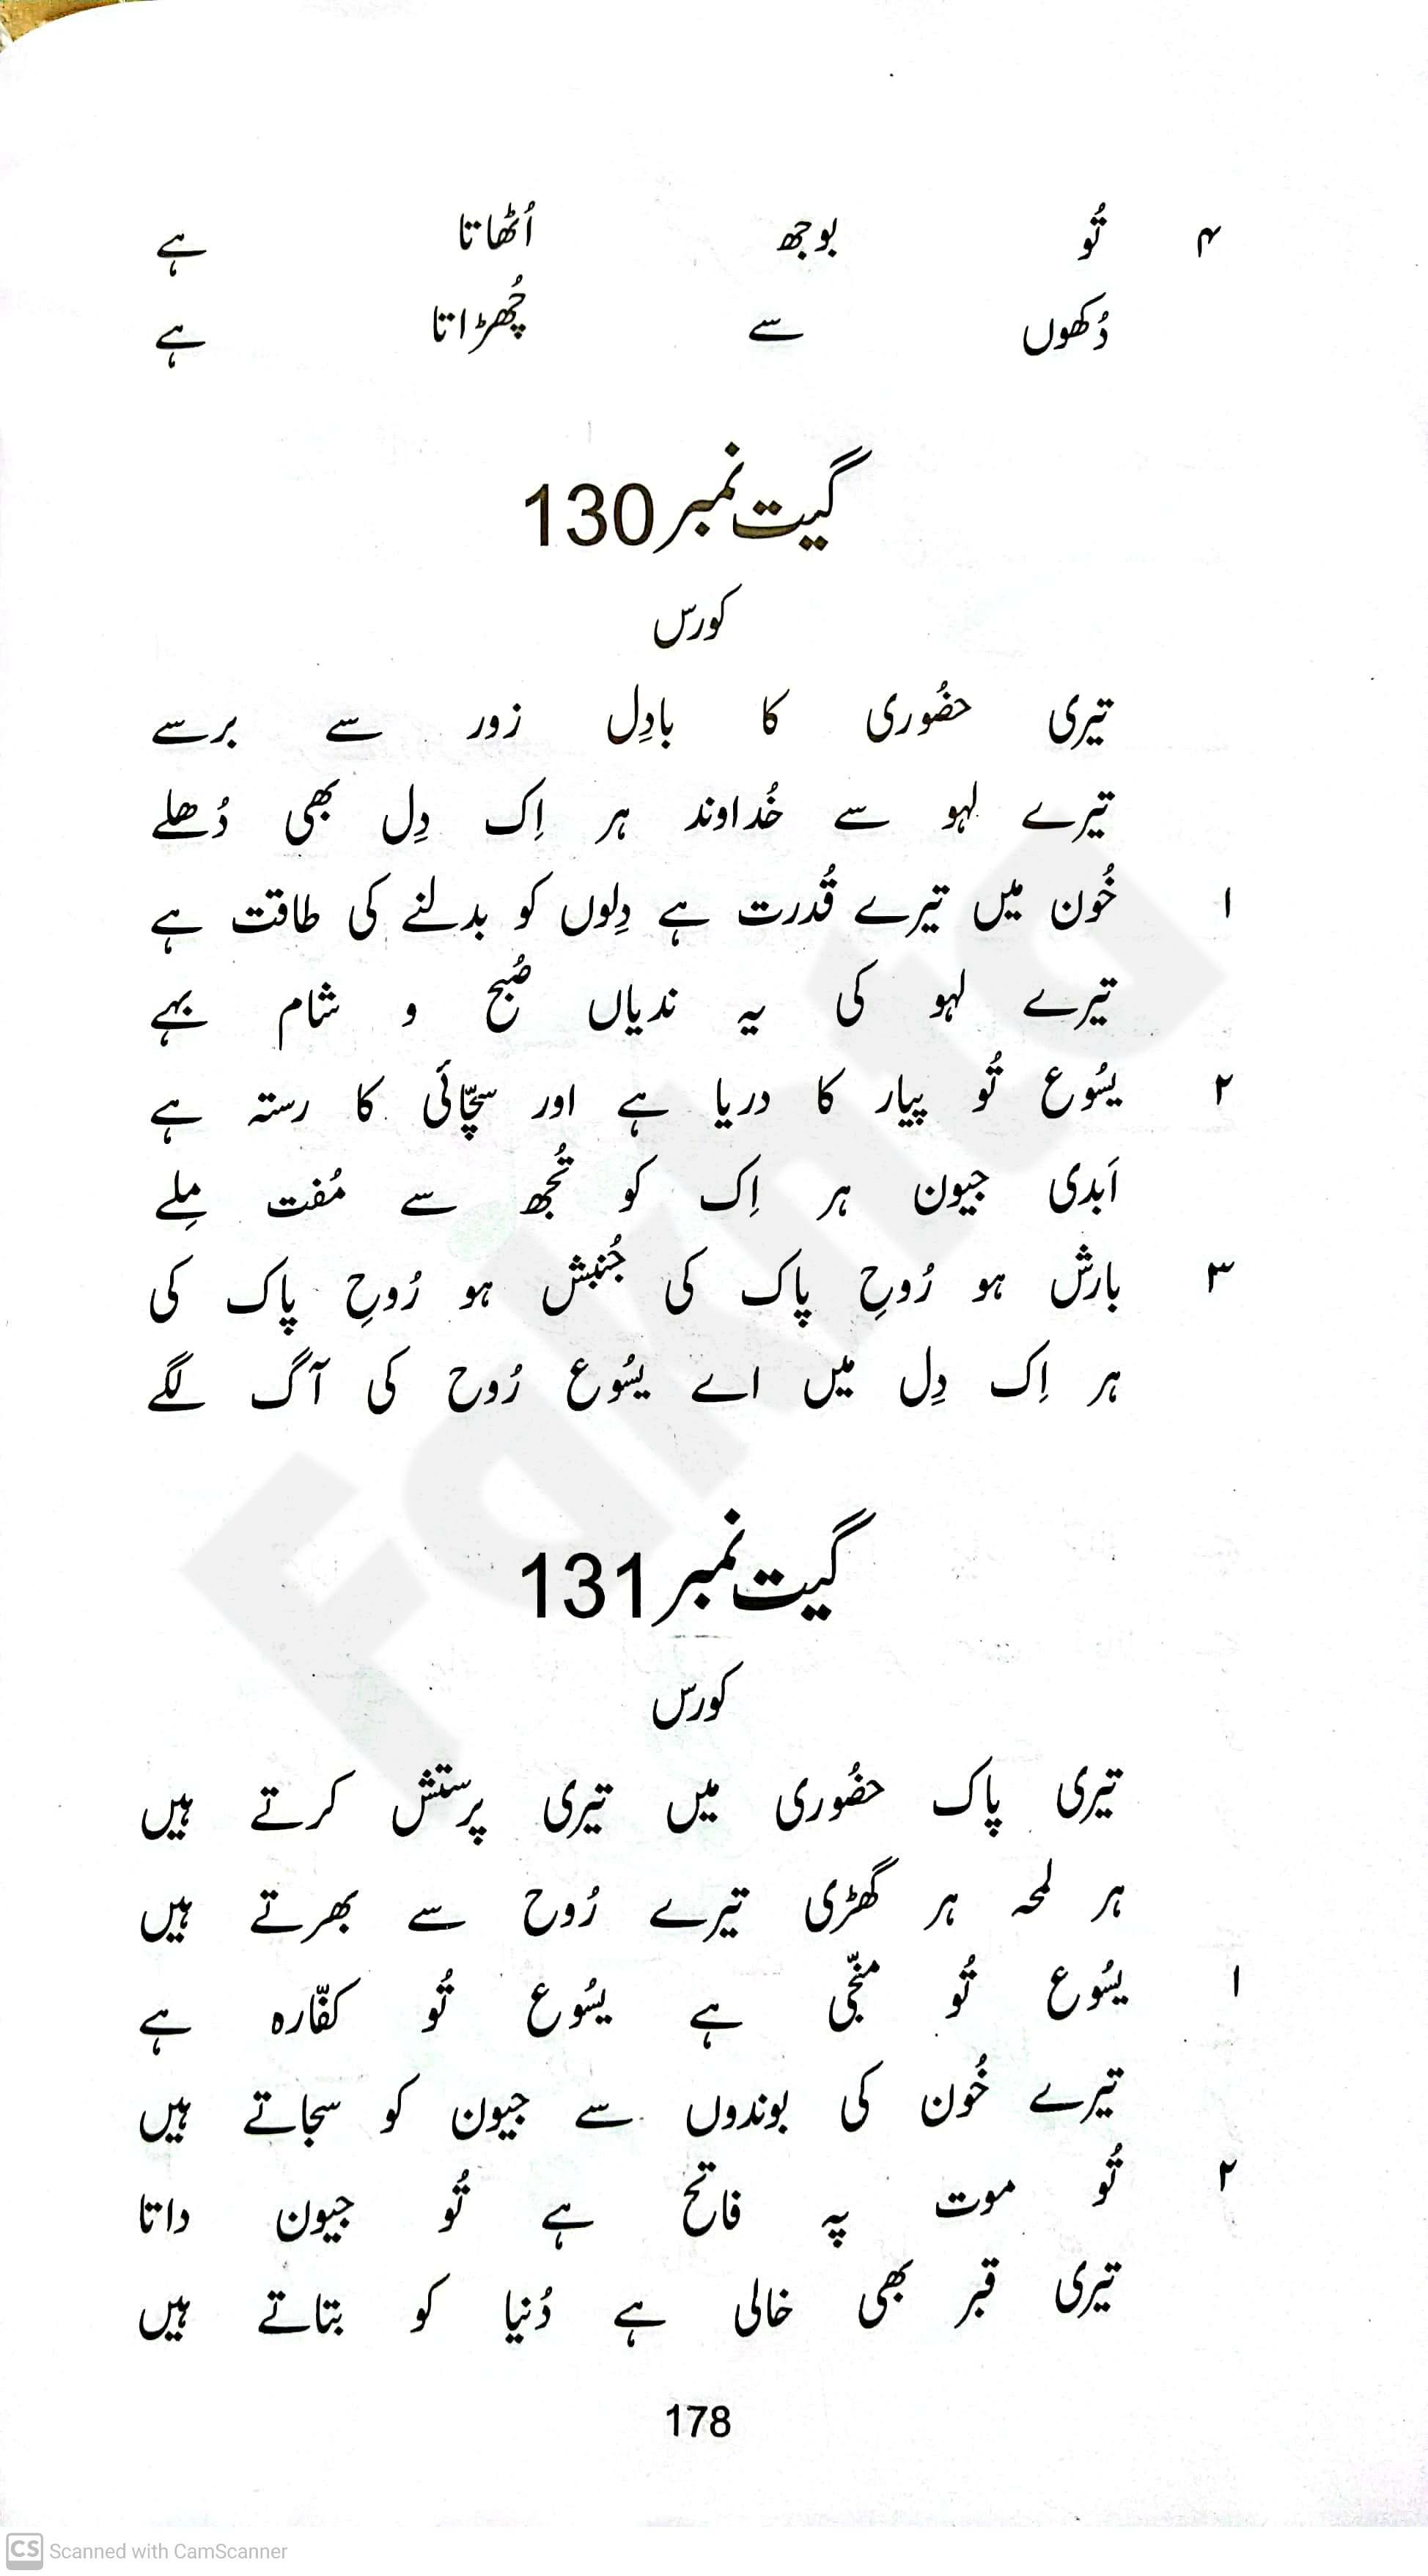 ۴ تُو بوجھ اُٹھاتا ہے
دُکھوں سے چُھڑاتا ہے
گیت نمبر 130
کورس
تیری حضُوری کا بادِل زور سے برسے
تیرے لہو سے خُداوند ہر اِک دِل بھی دُھلے
۱ خُون میں تیرے قُدرت ہے دِلوں کو بدلنے کی طاقت ہے
تیرے لہو کی یہ ندیاں صُبح و شام بہے
۲ یسُوع تُو پیار کا دریا ہے اور سچّائی کا رستہ ہے
اَبدی جیون ہر اِک کو تُجھ سے مُفت مِلے
۳ بارش ہو رُوحِ پاک کی جُنبش ہو رُوحِ پاک کی
ہر اِک دِل میں اے یسُوع رُوح کی آگ لگے
گیت نمبر 131
کورس
تیری پاک حضُوری میں تیری پرستش کرتے ہیں
ہر لمحہ ہر گھڑی تیرے رُوح سے بھرتے ہیں
۱ یسُوع تُو منجّی ہے یسُوع تُو کفّارہ ہے
تیرے خُون کی بوندوں سے جیون کو سجاتے ہیں
۲ تُو موت پہ فاتح ہے تُو جیون داتا
تیری قبر بھی خالی ہے دُنیا کو بتاتے ہیں
178
Fakhta
CS Scanned with CamScanner